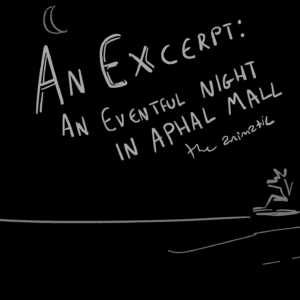 An Excerpt:
An Eventful Night
in Aphal Mall
the animatic